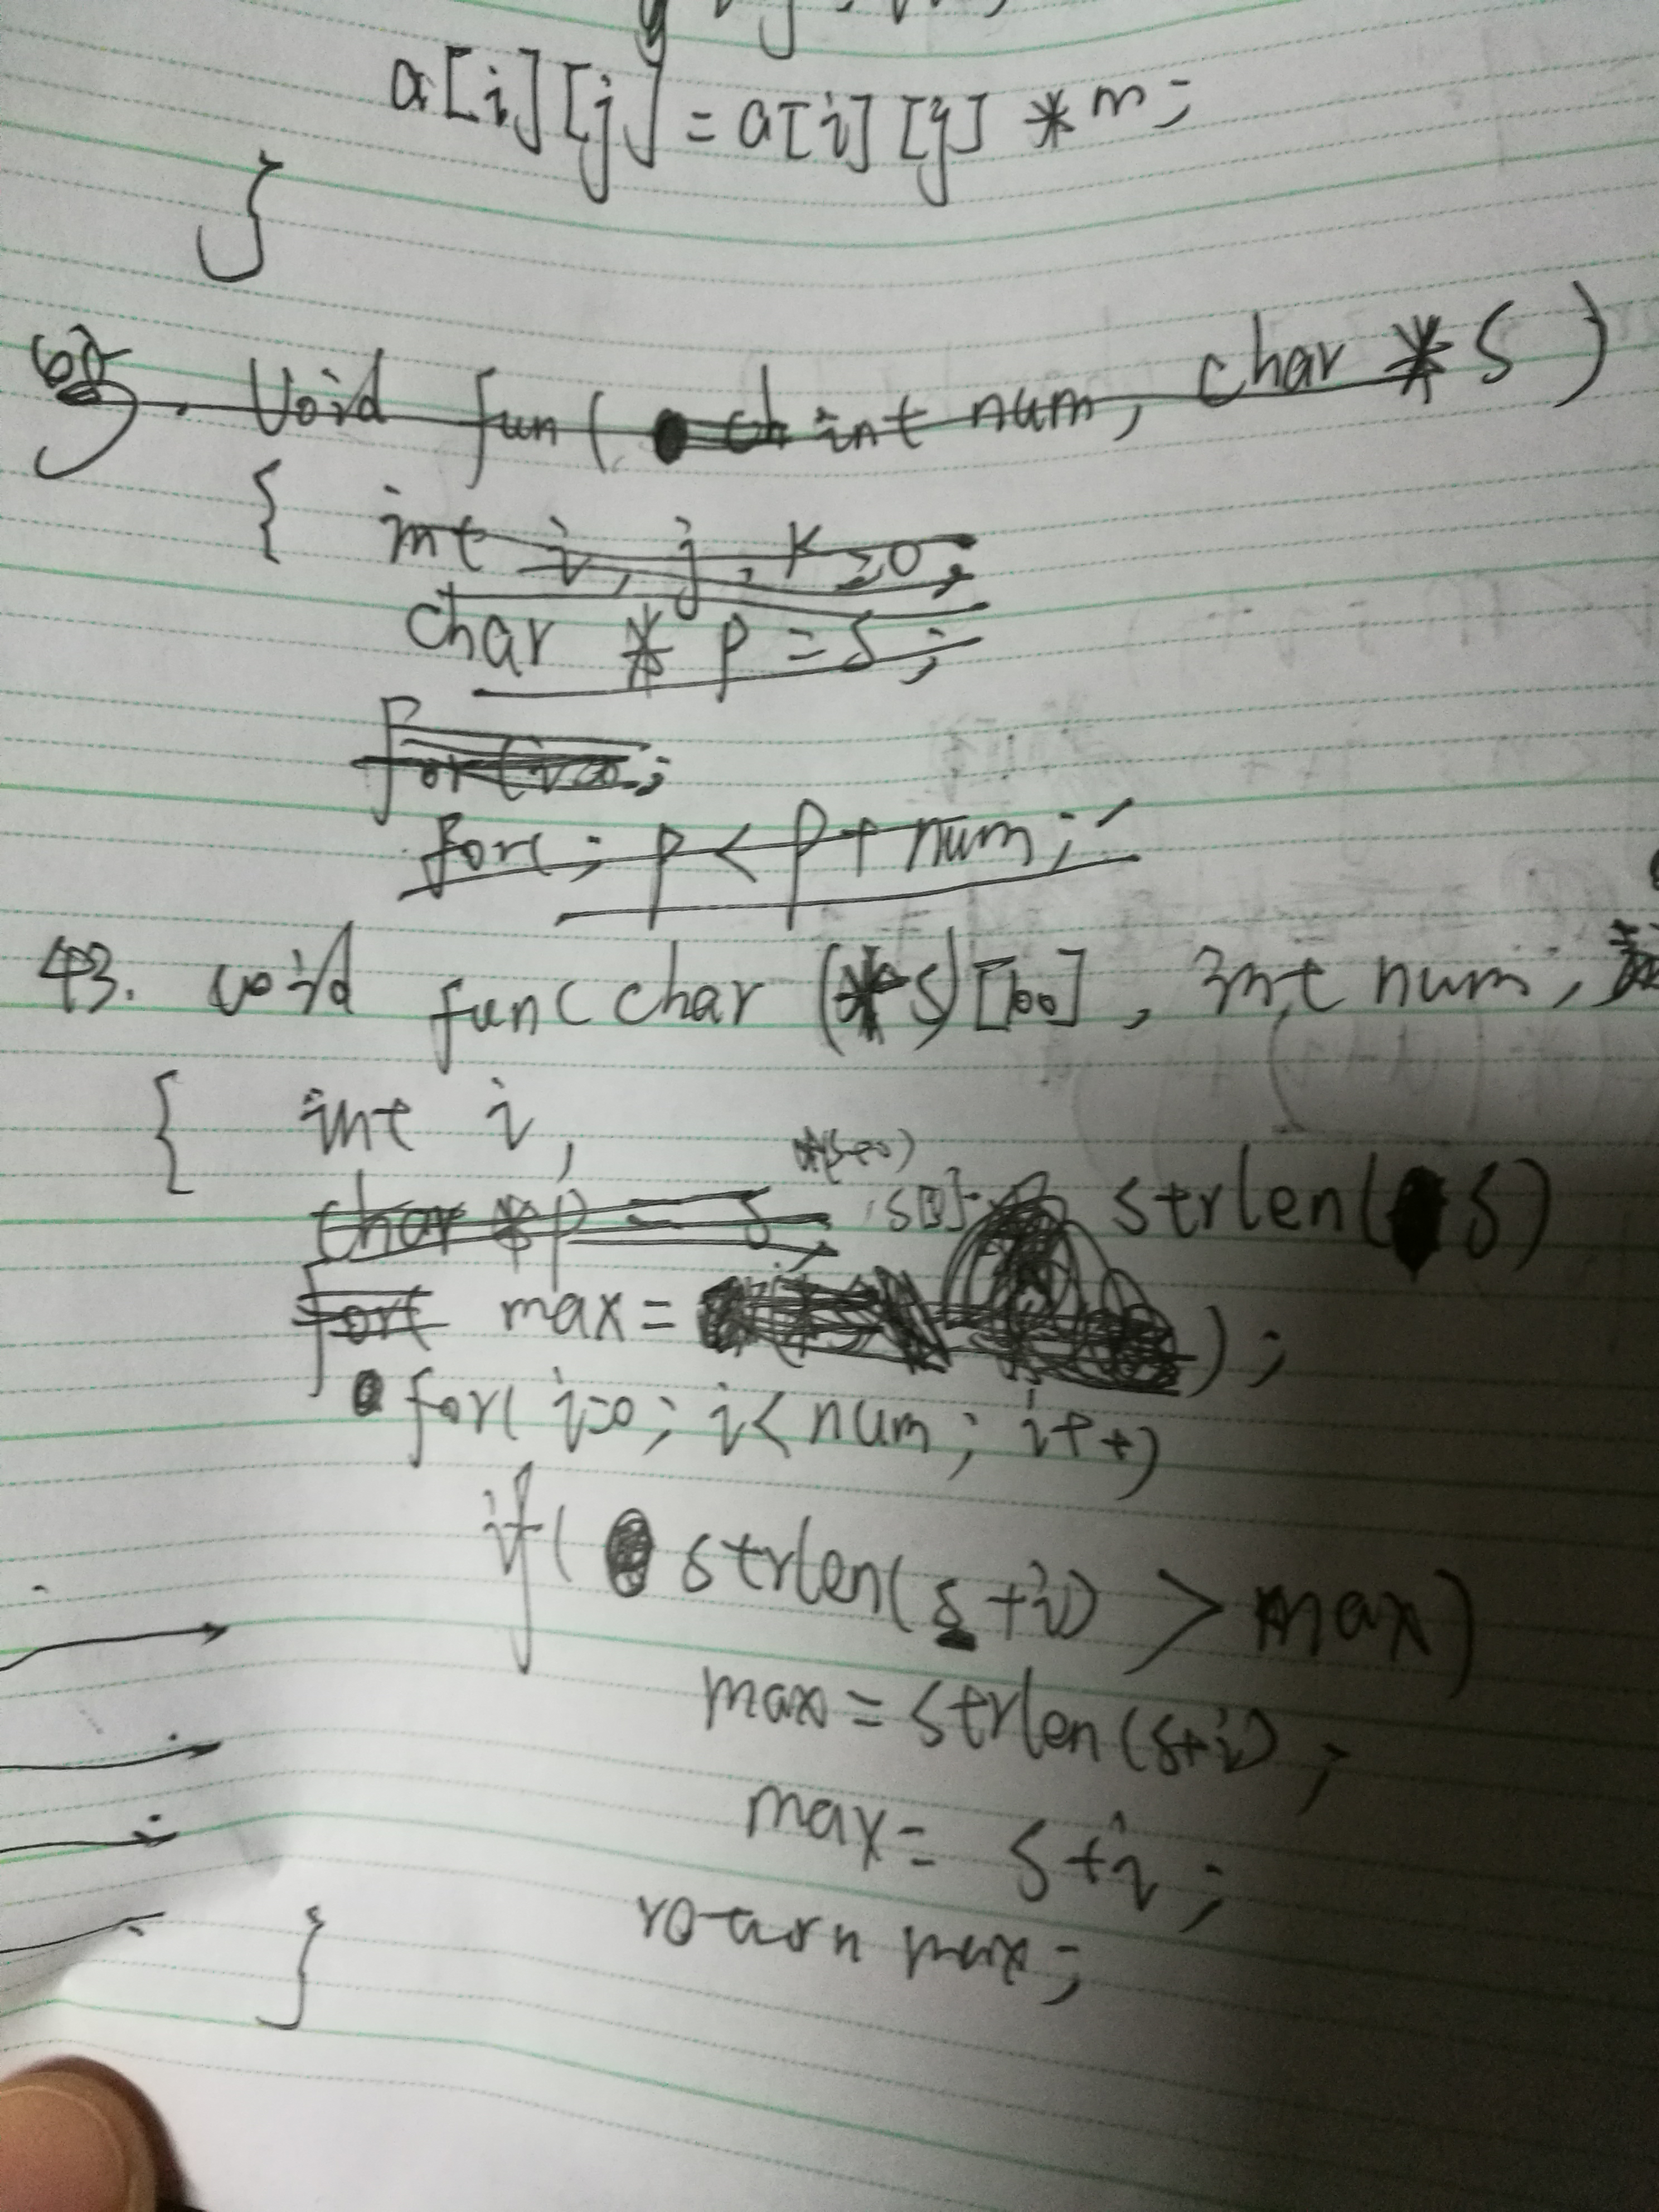 a[i][j]=a[i][j] *m;
}
void fun( ch int num, char *s)
{ int i, j, k=0;
char * p = s;
for(i=0;
for(; p < p+ num;
43. void fun(char (*s)[100], int num,
{ int i,
char *p = s; s[0] strlen( s)
for( max = );
for( i=0; i< num; i++)
if( strlen(s+i) > max)
max = strlen(s+i);
max = s+i;
return max;
}